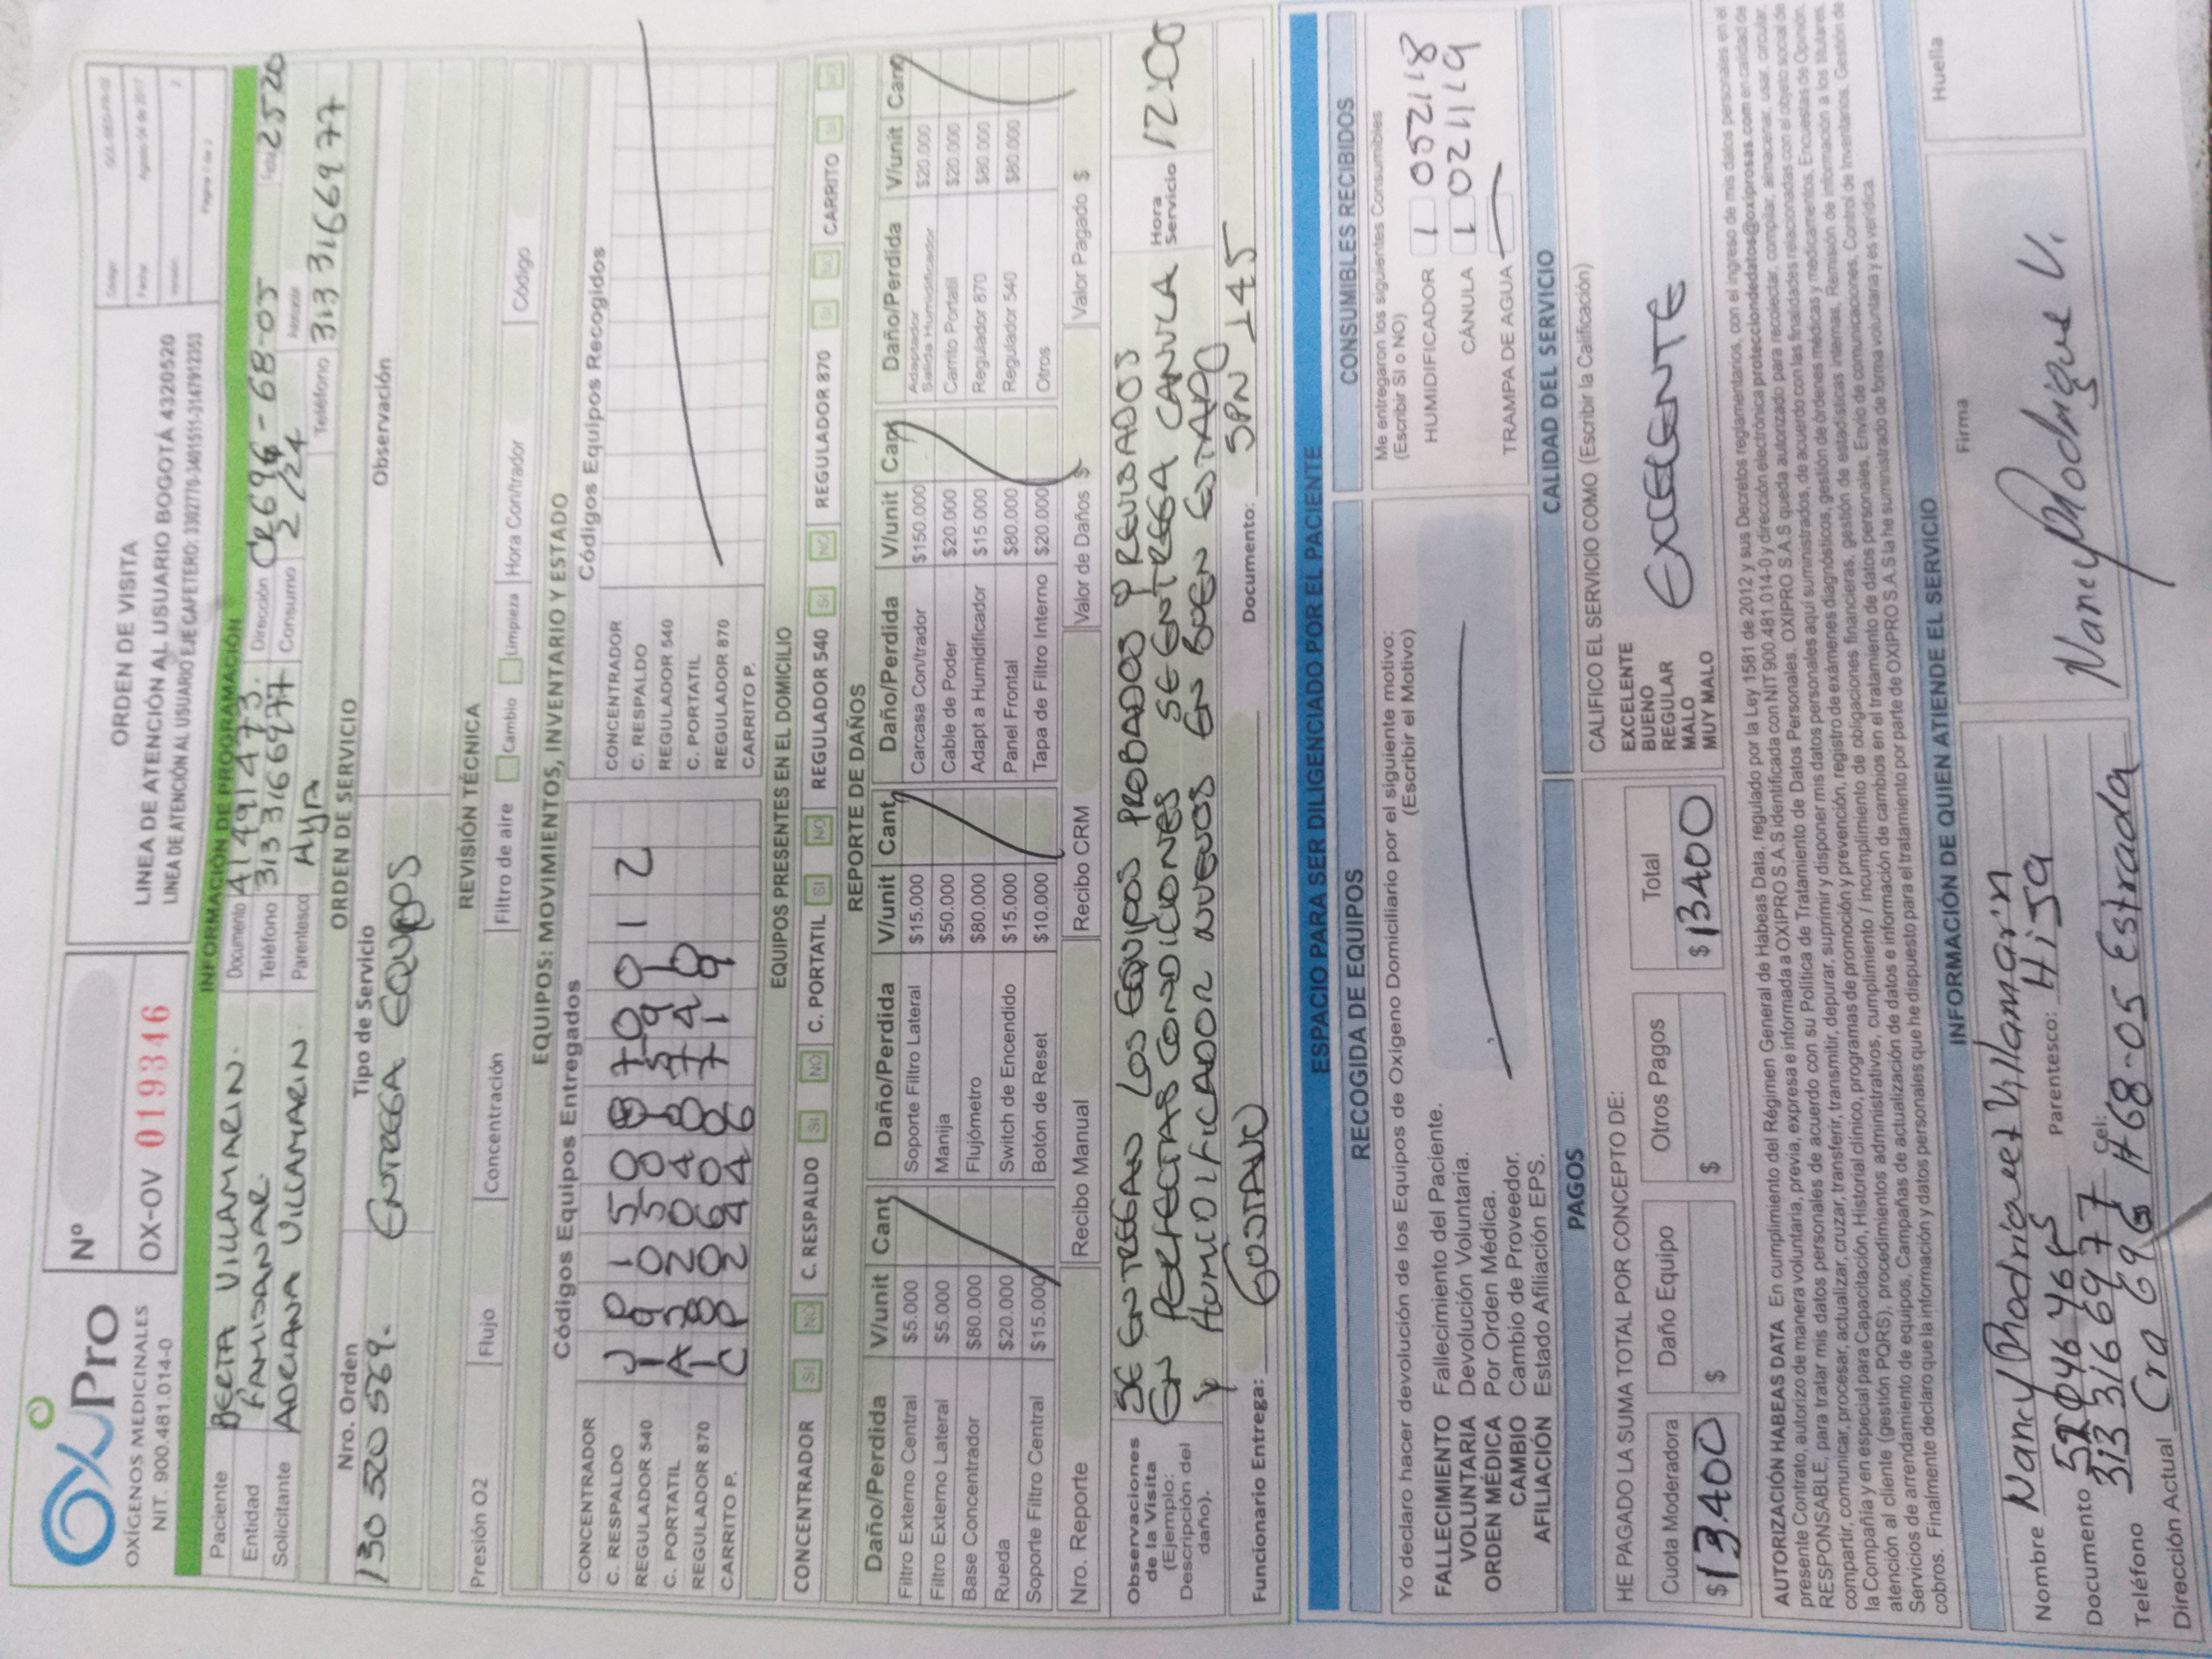 OxiPro
OXÍGENOS MEDICINALES
NIT. 900.481.014-0
Nº
OX-OV 019346
ORDEN DE VISITA
LINEA DE ATENCIÓN AL USUARIO BOGOTÁ 4320520
LINEA DE ATENCIÓN AL USUARIO EJE CAFETERO: 3302770-3401511-3147912353
Código
Fecha Agosto 04 de 2017
Versión 2
Página 1 de 2
INFORMACIÓN DE PROGRAMACIÓN
Paciente BERTA VILLAMARIN. Documento 41491473. Dirección Cr69G-68-05 Fecha 2520
Entidad FAMISANAR. Teléfono 3133166977 Consumo 2/24 Horario
Solicitante ADRIANA VILLAMARIN Parentesco Hija Teléfono 3133166977
ORDEN DE SERVICIO
Nro. Orden Tipo de Servicio Observación
130320569. ENTREGA EQUIPOS
REVISIÓN TÉCNICA
Presión O2 Flujo Concentración Filtro de aire Cambio Limpieza Hora Con/trador Código
EQUIPOS: MOVIMIENTOS, INVENTARIO Y ESTADO
Códigos Equipos Entregados Códigos Equipos Recogidos
CONCENTRADOR CONCENTRADOR
C. RESPALDO C. RESPALDO
REGULADOR 540 REGULADOR 540
C. PORTATIL C. PORTATIL
REGULADOR 870 REGULADOR 870
CARRITO P. CARRITO P.
EQUIPOS PRESENTES EN EL DOMICILIO
CONCENTRADOR SI NO C. RESPALDO SI NO C. PORTATIL SI NO REGULADOR 540 SI NO REGULADOR 870 SI NO CARRITO SI NO
REPORTE DE DAÑOS
Daño/Perdida V/unit Cant Daño/Perdida V/unit Cant Daño/Perdida V/unit Cant Daño/Perdida V/unit Cant
Filtro Externo Central $5.000 Soporte Filtro Lateral $15.000 Carcasa Con/trador $150.000 Adaptador Salida Humidificador $20.000
Filtro Externo Lateral $5.000 Manija $50.000 Cable de Poder $20.000 Carrito Portatil $20.000
Base Concentrador $80.000 Flujómetro $80.000 Adapt a Humidificador $15.000 Regulador 870 $80.000
Rueda $20.000 Switch de Encendido $15.000 Panel Frontal $80.000 Regulador 540 $80.000
Soporte Filtro Central $15.000 Botón de Reset $10.000 Tapa de Filtro Interno $20.000 Otros
Nro. Reporte Recibo Manual Recibo CRM Valor de Daños $ Valor Pagado $
Observaciones de la Visita (Ejemplo: Descripción del daño).
SE ENTREGAN LOS EQUIPOS PROBADOS Y REVISADOS
EN PERFECTAS CONDICIONES SE ENTREGA CANULA
Y HUMIDIFICADOR NUEVOS EN BUEN ESTADO
Hora Servicio 12:00
Funcionario Entrega: GUSTAVO Documento:
ESPACIO PARA SER DILIGENCIADO POR EL PACIENTE
RECOGIDA DE EQUIPOS
Yo declaro hacer devolución de los Equipos de Oxígeno Domiciliario por el siguiente motivo:
(Escribir el Motivo)
FALLECIMIENTO Fallecimiento del Paciente.
VOLUNTARIA Devolución Voluntaria.
ORDEN MÉDICA Por Orden Médica.
CAMBIO Cambio de Proveedor.
AFILIACIÓN Estado Afiliación EPS.
CONSUMIBLES RECIBIDOS
Me entregaron los siguientes Consumibles
(Escribir SI o NO)
HUMIDIFICADOR 1 052118
CÁNULA 1 021119
TRAMPA DE AGUA
PAGOS
HE PAGADO LA SUMA TOTAL POR CONCEPTO DE:
Cuota Moderadora Daño Equipo Otros Pagos Total
$13.400 $ $ $13400
CALIDAD DEL SERVICIO
CALIFICO EL SERVICIO COMO (Escribir la Calificación)
EXCELENTE
BUENO
REGULAR
MALO
MUY MALO
EXCELENTE
AUTORIZACIÓN HABEAS DATA En cumplimiento del Régimen General de Habeas Data, regulado por la Ley 1581 de 2012 y sus Decretos reglamentarios, con el ingreso de mis datos personales en el
presente Contrato, autorizo de manera voluntaria, previa, expresa e informada a OXIPRO S.A.S identificada con NIT 900.481.014-0 y dirección electrónica protecciondedatos@oxiprosas.com en calidad de
RESPONSABLE, para tratar mis datos personales de acuerdo con su Política de Tratamiento de Datos Personales. OXIPRO S.A.S queda autorizado para recolectar, compilar, almacenar, usar, circular,
compartir, comunicar, procesar, actualizar, cruzar, transferir, transmitir, depurar, suprimir y disponer mis datos personales aquí suministrados, de acuerdo con las finalidades relacionadas con el objeto social de
la Compañía y en especial para Capacitación, Historial clínico, programas de promoción y prevención, registro de exámenes diagnósticos, gestión de órdenes médicas y medicamentos, Encuestas de Opinión,
atención al cliente (gestión PQRS), procedimientos administrativos, cumplimiento / incumplimiento de obligaciones financieras, gestión de estadísticas internas, Remisión de información a los titulares,
Servicios de arrendamiento de equipos, Campañas de actualización de datos e información de cambios en el tratamiento de datos personales, Envío de comunicaciones, Control de Inventarios, Gestión de
cobros. Finalmente declaro que la información y datos personales que he dispuesto para el tratamiento por parte de OXIPRO S.A.S la he suministrado de forma voluntaria y es verídica.
INFORMACIÓN DE QUIEN ATIENDE EL SERVICIO
Nombre Nancy Rhodriguez Villamarin
Documento 52046465 Parentesco: Hija
Teléfono 3133166977 Cel:
Dirección Actual Cra 69G #68-05 Estrada
Firma
Nancy Rhodriguez V.
Huella